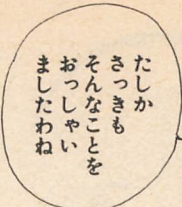 たしか
さっきも
そんなことを
おっしゃい
ましたわね